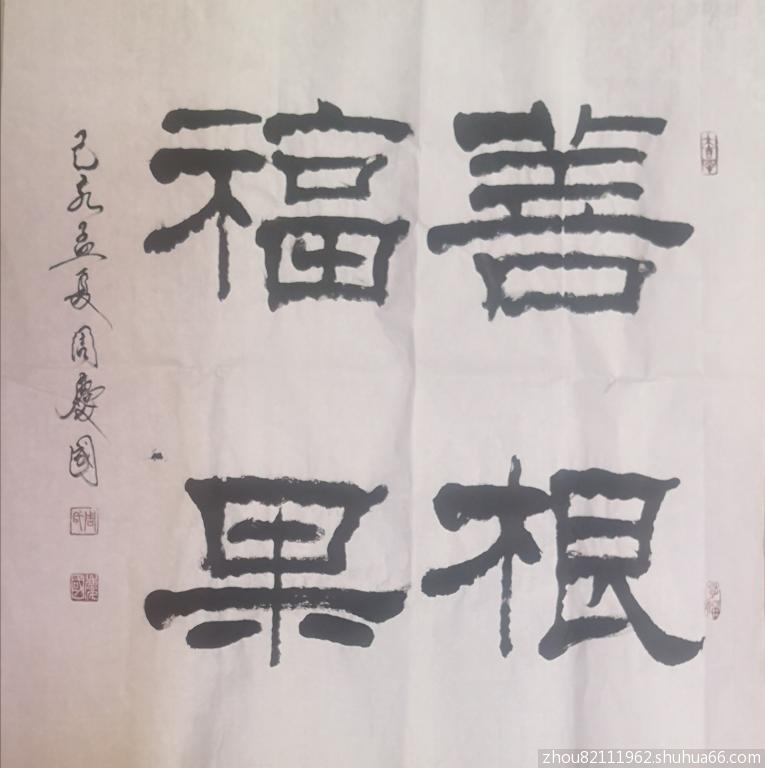 善根
福果
己亥孟夏周慶國
zhou82111962.shuhua66.com